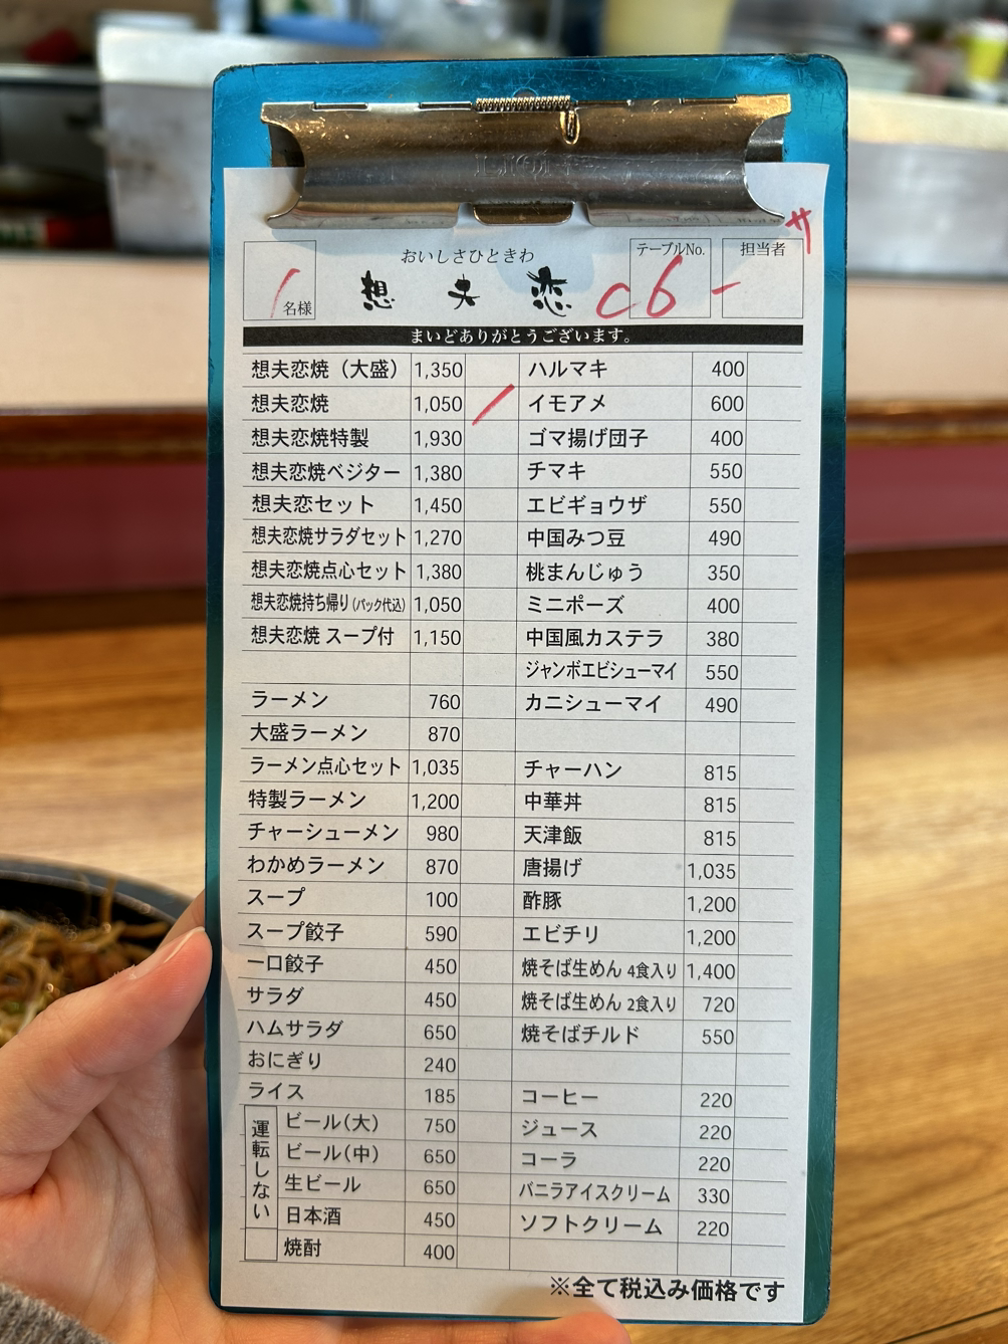 サ
おいしさひときわ
テーブルNo.
担当者
1名様
想夫恋
C6-
まいどありがとうございます。
想夫恋焼（大盛） 1,350 ハルマキ 400
想夫恋焼 1,050 / イモアメ 600
想夫恋焼特製 1,930 ゴマ揚げ団子 400
想夫恋焼ベジター 1,380 チマキ 550
想夫恋セット 1,450 エビギョウザ 550
想夫恋焼サラダセット 1,270 中国みつ豆 490
想夫恋焼点心セット 1,380 桃まんじゅう 350
想夫恋焼持ち帰り(パック代込) 1,050 ミニポーズ 400
想夫恋焼 スープ付 1,150 中国風カステラ 380
ジャンボエビシューマイ 550
ラーメン 760 カニシューマイ 490
大盛ラーメン 870
ラーメン点心セット 1,035 チャーハン 815
特製ラーメン 1,200 中華丼 815
チャーシューメン 980 天津飯 815
わかめラーメン 870 唐揚げ 1,035
スープ 100 酢豚 1,200
スープ餃子 590 エビチリ 1,200
一口餃子 450 焼そば生めん 4食入り 1,400
サラダ 450 焼そば生めん 2食入り 720
ハムサラダ 650 焼そばチルド 550
おにぎり 240
ライス 185 コーヒー 220
運転しない
ビール(大) 750 ジュース 220
ビール(中) 650 コーラ 220
生ビール 650 バニラアイスクリーム 330
日本酒 450 ソフトクリーム 220
焼酎 400
※全て税込み価格です